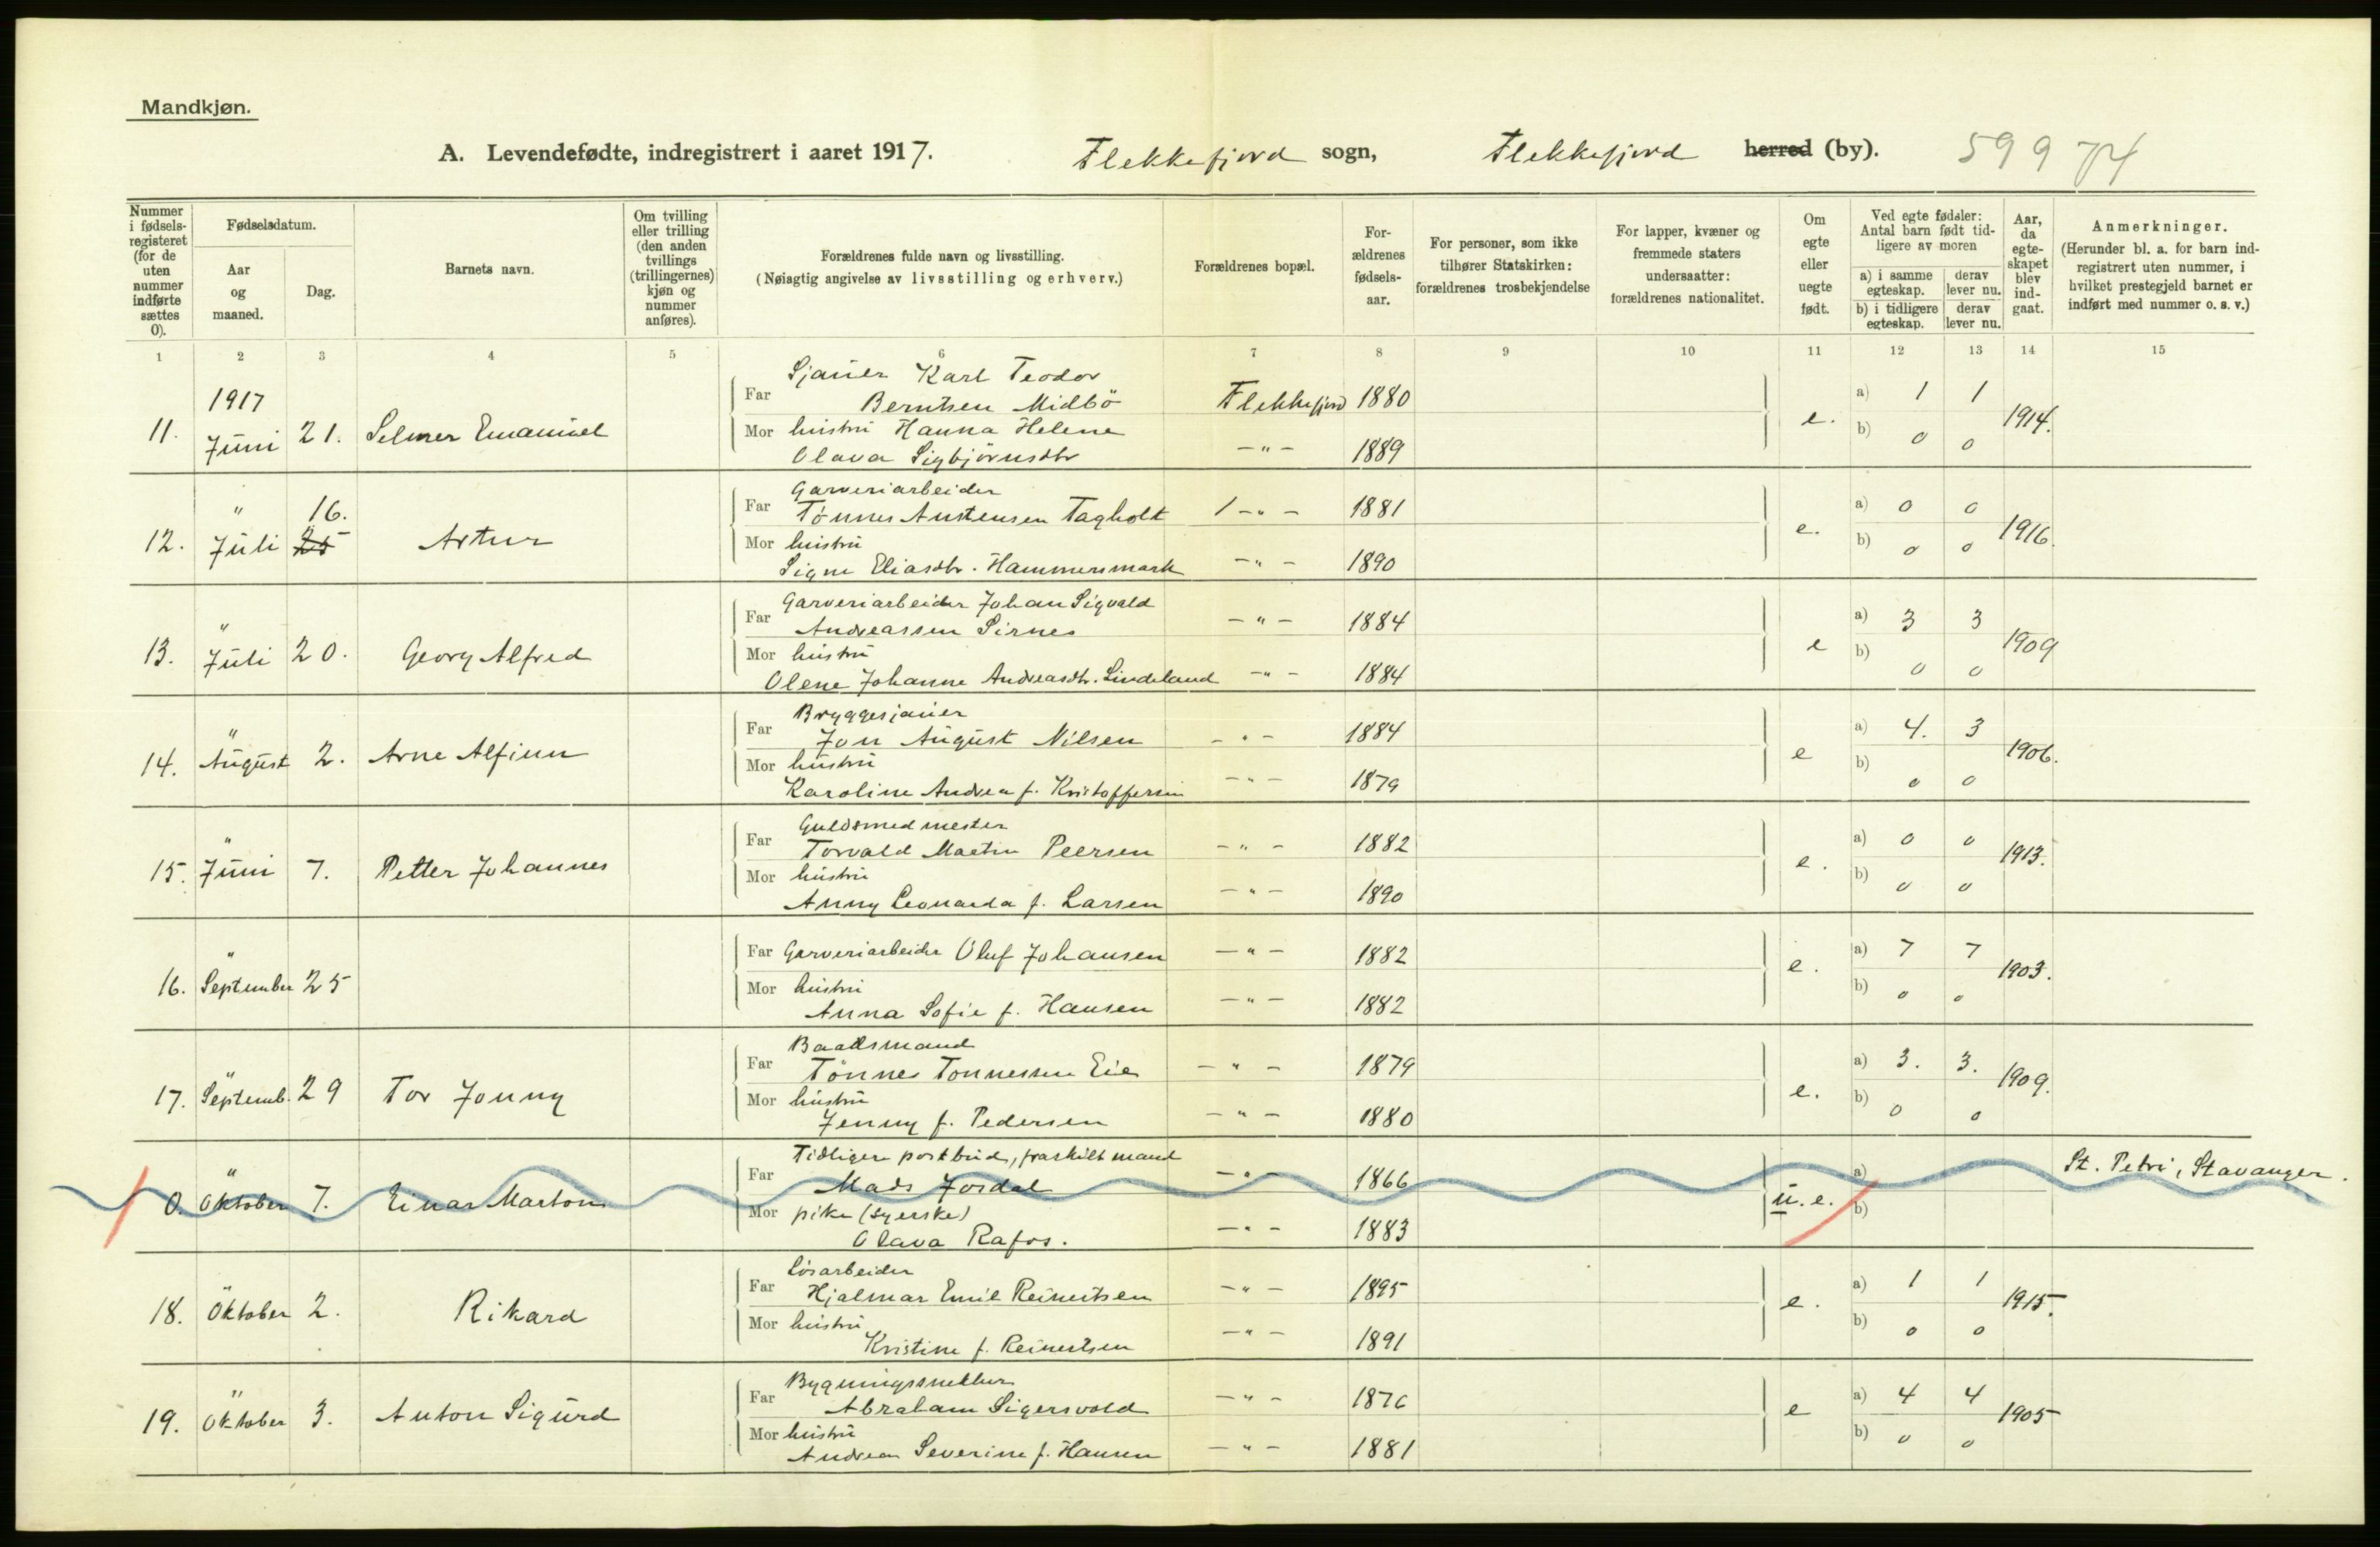 Mandkjøn.
A. Levendefødte, indregistrert i aaret 1917. Flekkefjord sogn, Flekkefjord herred (by). 599 74
Nummer i fødsels-registeret (for de uten nummer indførte sættes 0).
Fødselsdatum.
Aar og maaned.
Dag.
Barnets navn.
Om tvilling eller trilling (den anden tvillings (trillingernes) kjøn og nummer anføres).
Forældrenes fulde navn og livsstilling.
(Nøiagtig angivelse av livsstilling og erhverv.)
Forældrenes bopæl.
For-ældrenes fødsels-aar.
For personer, som ikke tilhører Statskirken: forældrenes trosbekjendelse
For lapper, kvæner og fremmede staters undersaatter: forældrenes nationalitet.
Om egte eller uegte født.
Ved egte fødsler: Antal barn født tid-ligere av moren
a) i samme egteskap. derav lever nu.
b) i tidligere egteskap. derav lever nu.
Aar, da egte-skapet blev ind-gaat.
Anmerkninger.
(Herunder bl. a. for barn ind-registrert uten nummer, i hvilket prestegjeld barnet er indført med nummer o. s. v.)
1 2 3 4 5 6 7 8 9 10 11 12 13 14 15
Sjauer Karl Teodor
1917 Far Berntsen Midbö Flekkefjord 1880 a) 1 1
11. Juni 21. Selmer Emanuel Mor hustru Hanna Helene e. b) 0 0 1914.
Olava Sigbjörnsdtr -"- 1889
Garveriarbeider
" 16. Far Tönnes Austensen Tagholt 1 -"- 1881 a) 0 0
12. Juli 25 Artur Mor hustru e. b) 0 0 1916.
Signe Eliasdtr. Hammersmark -"- 1890
Garveriarbeider Johan Sigvald
" Far Andreassen Sirnes -"- 1884 a) 3 3
13. Juli 20. Georg Alfred Mor hustru e b) 0 0 1909
Olene Johanne Andreasdtr. Lindeland -"- 1884
Bryggesjauer
" Far Jon August Nilsen -"- 1884 a) 4. 3
14. August 2. Arne Alfinn Mor hustru e b) 0 0 1906.
Karoline Andrea f. Kristoffersen -"- 1879
Guldsmedmester
" Far Torvald Martin Peersen -"- 1882 a) 0 0
15. Juni 7. Petter Johannes Mor hustru e. b) 0 0 1913.
Anny Leonarda f. Larsen -"- 1890
" Far Garveriarbeider Oluf Johansen -"- 1882 a) 7 7
16. September 25 Mor hustru e. b) 0 0 1903.
Anna Sofie f. Hansen -"- 1882
Baadsmand
" Far Tönnes Tonnessen Eie -"- 1879 a) 3. 3.
17. Septemb. 29 Tor Jonny Mor hustru e. b) 0 0 1909.
Jenny f. Pedersen -"- 1880
Tidligere postbud, fraskilt mand St. Petri, Stavanger.
" Far Mads Jordal -"- 1866 a)
0. Oktober 7. Einar Marton Mor pike (syerske) u.e. b)
Olava Rafos. -"- 1883
Lösarbeider
" Far Hjalmar Emil Reinertsen -"- 1895 a) 1 1
18. Oktober 2. Rikard Mor hustru e. b) 0 0 1915.
Kristine f. Reinertsen -"- 1891
Bygningssnekker
" Far Abraham Sigersvold -"- 1876 a) 4 4
19. Oktober 3. Anton Sigurd Mor hustru e b) 0 0 1905
Andrea Severine f. Hansen -"- 1881